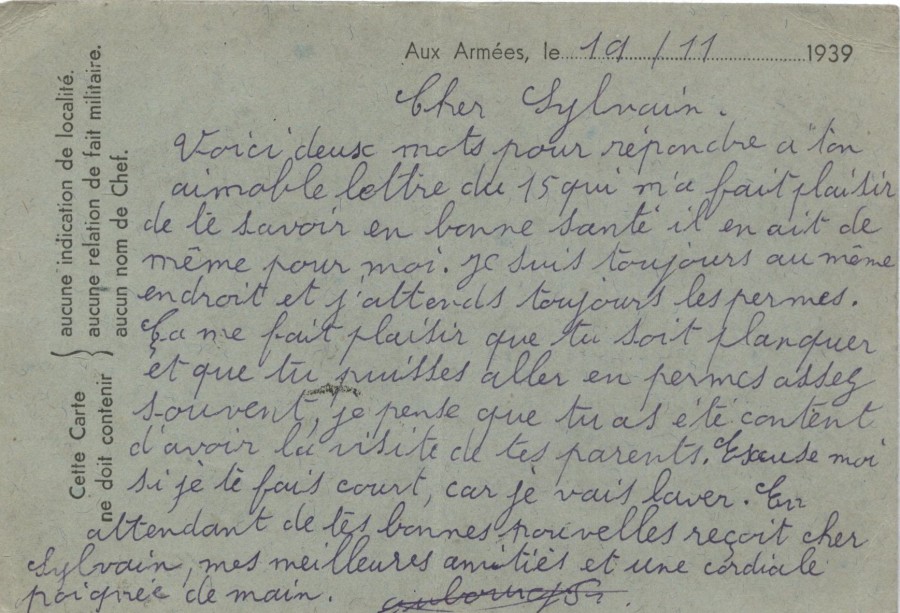 Aux Armées, le 19/11 1939
Cher Sylvain.
Voici deux mots pour répondre a ton
aimable lettre du 15 qui m'a fait plaisir
de te savoir en bonne santé il en ait de
même pour moi. Je suis toujours au même
endroit et j'attends toujours les permes.
Ça me fait plaisir que tu soit planquer
et que tu puisses aller en permes assez
souvent, je pense que tu as été content
d'avoir la visite de tes parents. Excuse moi
si je te fais court, car je vais laver. En
attendant de tes bonnes nouvelles reçoit cher
Sylvain, mes meilleures amitiés et une cordiale
poignée de main.
Cette Carte
ne doit contenir
aucune indication de localité.
aucune relation de fait militaire.
aucun nom de Chef.